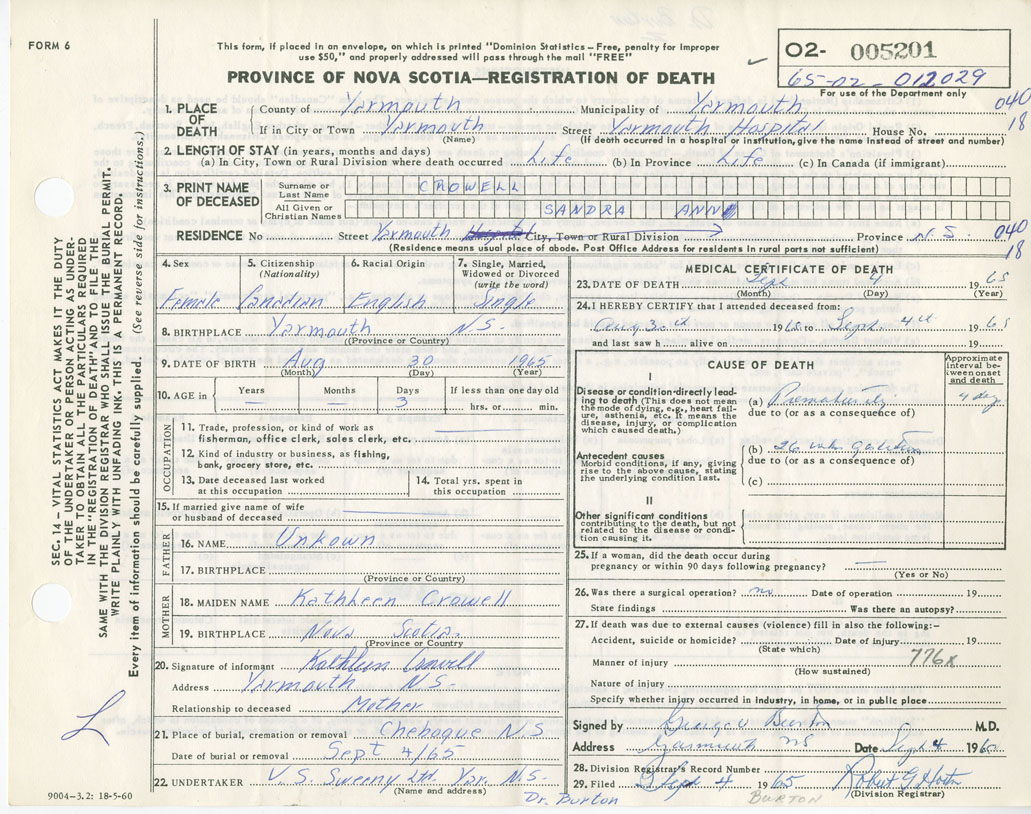 FORM 6
This form, if placed in an envelope, on which is printed "Dominion Statistics – Free, penalty for improper
use $50," and properly addressed will pass through the mail "FREE"
PROVINCE OF NOVA SCOTIA—REGISTRATION OF DEATH
O2- 005201
65-02-012029
For use of the Department only
1. PLACE OF DEATH
County of Yarmouth Municipality of Yarmouth 040
If in City or Town Yarmouth Street Yarmouth Hospital House No. 18
(Name) (If death occurred in a hospital or institution, give the name instead of street and number)
2. LENGTH OF STAY (in years, months and days)
(a) In City, Town or Rural Division where death occurred Life (b) In Province Life (c) In Canada (if immigrant)
3. PRINT NAME OF DECEASED
Surname or Last Name CROWELL
All Given or Christian Names SANDRA ANN
RESIDENCE No Street Yarmouth Hospital City, Town or Rural Division Province N.S. 040
(Residence means usual place of abode. Post Office Address for residents in rural parts not sufficient) 18
4. Sex Female
5. Citizenship (Nationality) Canadian
6. Racial Origin English
7. Single, Married, Widowed or Divorced (write the word) Single
8. BIRTHPLACE Yarmouth N.S.
(Province or Country)
9. DATE OF BIRTH Aug 30 1965
(Month) (Day) (Year)
10. AGE in Years — Months — Days 3 If less than one day old hrs. or min.
OCCUPATION
11. Trade, profession or kind of work as fisherman, office clerk, sales clerk, etc.
12. Kind of industry or business, as fishing, bank, grocery store, etc.
13. Date deceased last worked at this occupation
14. Total yrs. spent in this occupation
15. If married give name of wife or husband of deceased
FATHER
16. NAME Unkown
17. BIRTHPLACE
(Province or Country)
MOTHER
18. MAIDEN NAME Kathleen Crowell
19. BIRTHPLACE Nova Scotia
(Province or Country)
20. Signature of informant Kathleen Crowell
Address Yarmouth N.S.
Relationship to deceased Mother
21. Place of burial, cremation or removal Chebogue N.S
Date of burial or removal Sept 4/65
22. UNDERTAKER V. S. Sweeny Ltd. Yar. N.S.
(Name and address)
Dr. Burton
9004-3.2: 18-5-60
MEDICAL CERTIFICATE OF DEATH
23. DATE OF DEATH Sept 4 1965
(Month) (Day) (Year)
24. I HEREBY CERTIFY that I attended deceased from:
1965 to Sept. 4 1965
and last saw h alive on 19
CAUSE OF DEATH
Approximate interval between onset and death
I
Disease or condition directly leading to death (This does not mean the mode of dying, e.g., heart failure, asthenia, etc. It means the disease, injury, or complication which caused death.)
(a) Prematurity 4 day
due to (or as a consequence of)
Antecedent causes
Morbid conditions, if any, giving rise to the above cause, stating the underlying condition last.
(b) 26
due to (or as a consequence of)
(c)
II
Other significant conditions
contributing to the death, but not related to the disease or condition causing it.
25. If a woman, did the death occur during pregnancy or within 90 days following pregnancy? —
(Yes or No)
26. Was there a surgical operation? no Date of operation 19
State findings Was there an autopsy?
27. If death was due to external causes (violence) fill in also the following:–
Accident, suicide or homicide? Date of injury 19
(State which)
Manner of injury 776x
(How sustained)
Nature of injury
Specify whether injury occurred in industry, in home, or in public place
Signed by George V Burton M.D.
Address Yarmouth NS Date Sept 4 1965
28. Division Registrar's Record Number
29. Filed Sept 4 1965 Robert G Horton
(Division Registrar)
BURTON
SEC. 14 – VITAL STATISTICS ACT MAKES IT THE DUTY
OF THE UNDERTAKER OR PERSON ACTING AS UNDER-
TAKER TO OBTAIN ALL THE PARTICULARS REQUIRED
IN THE "REGISTRATION OF DEATH" AND TO FILE THE
SAME WITH THE DIVISION REGISTRAR WHO SHALL ISSUE THE BURIAL PERMIT.
WRITE PLAINLY WITH UNFADING INK. THIS IS A PERMANENT RECORD.
Every item of information should be carefully supplied. (See reverse side for instructions.)
L